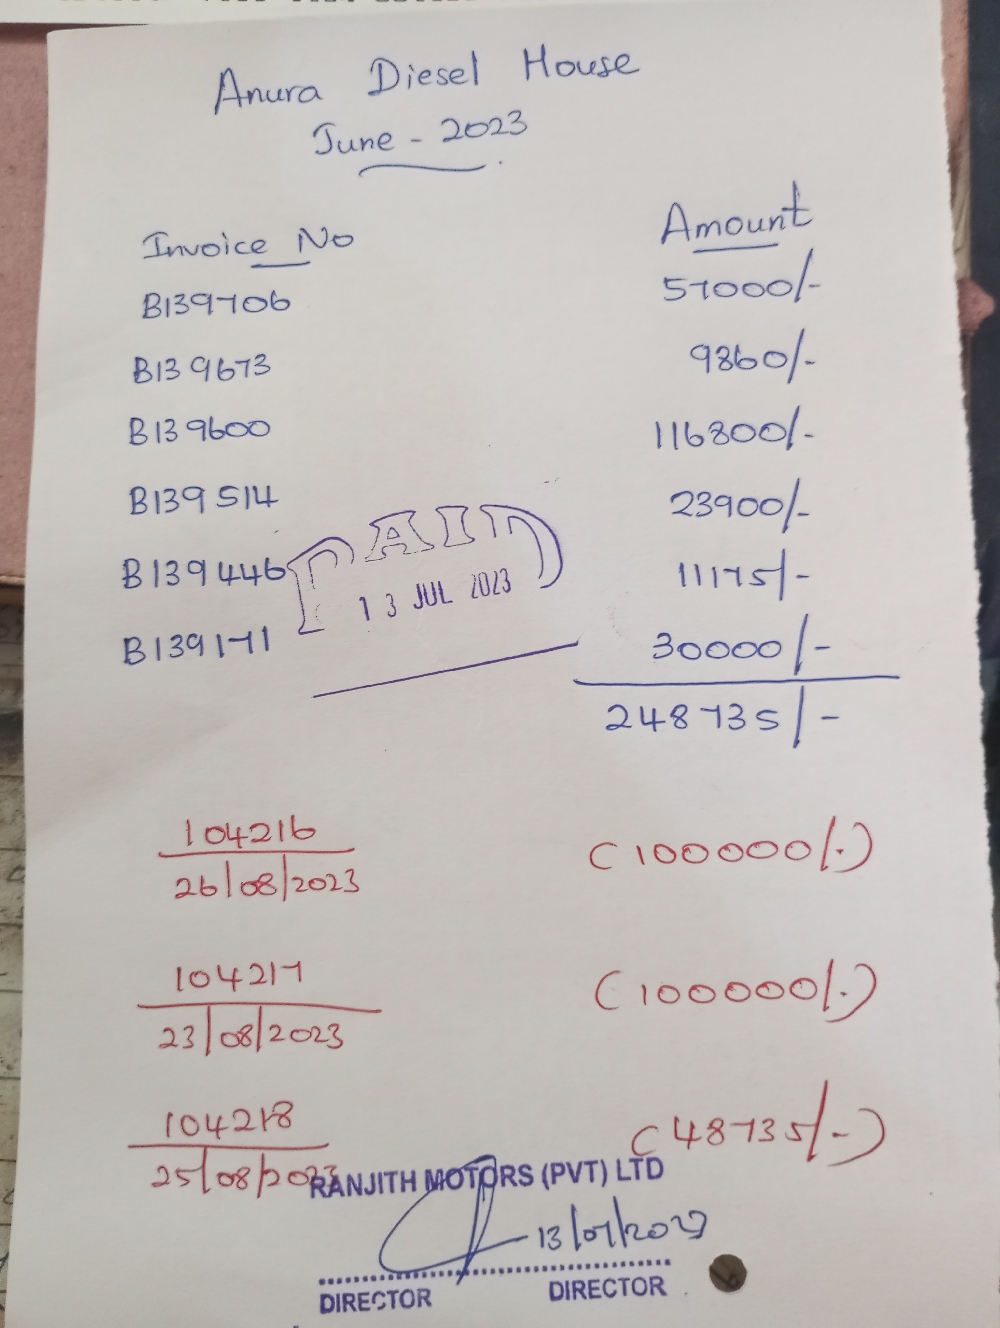 Anura Diesel House
June - 2023
Invoice No Amount
B139706 57000/-
B139673 9860/-
B139600 116800/-
B139514 23900/-
B139446 11175/-
PAID
13 JUL 2023
B139171 30000/-
248735/-
104216 (100000/-)
26/08/2023
104217 (100000/-)
23/08/2023
104218 (48735/-)
25/08/2023
RANJITH MOTORS (PVT) LTD
13/07/2023
DIRECTOR DIRECTOR